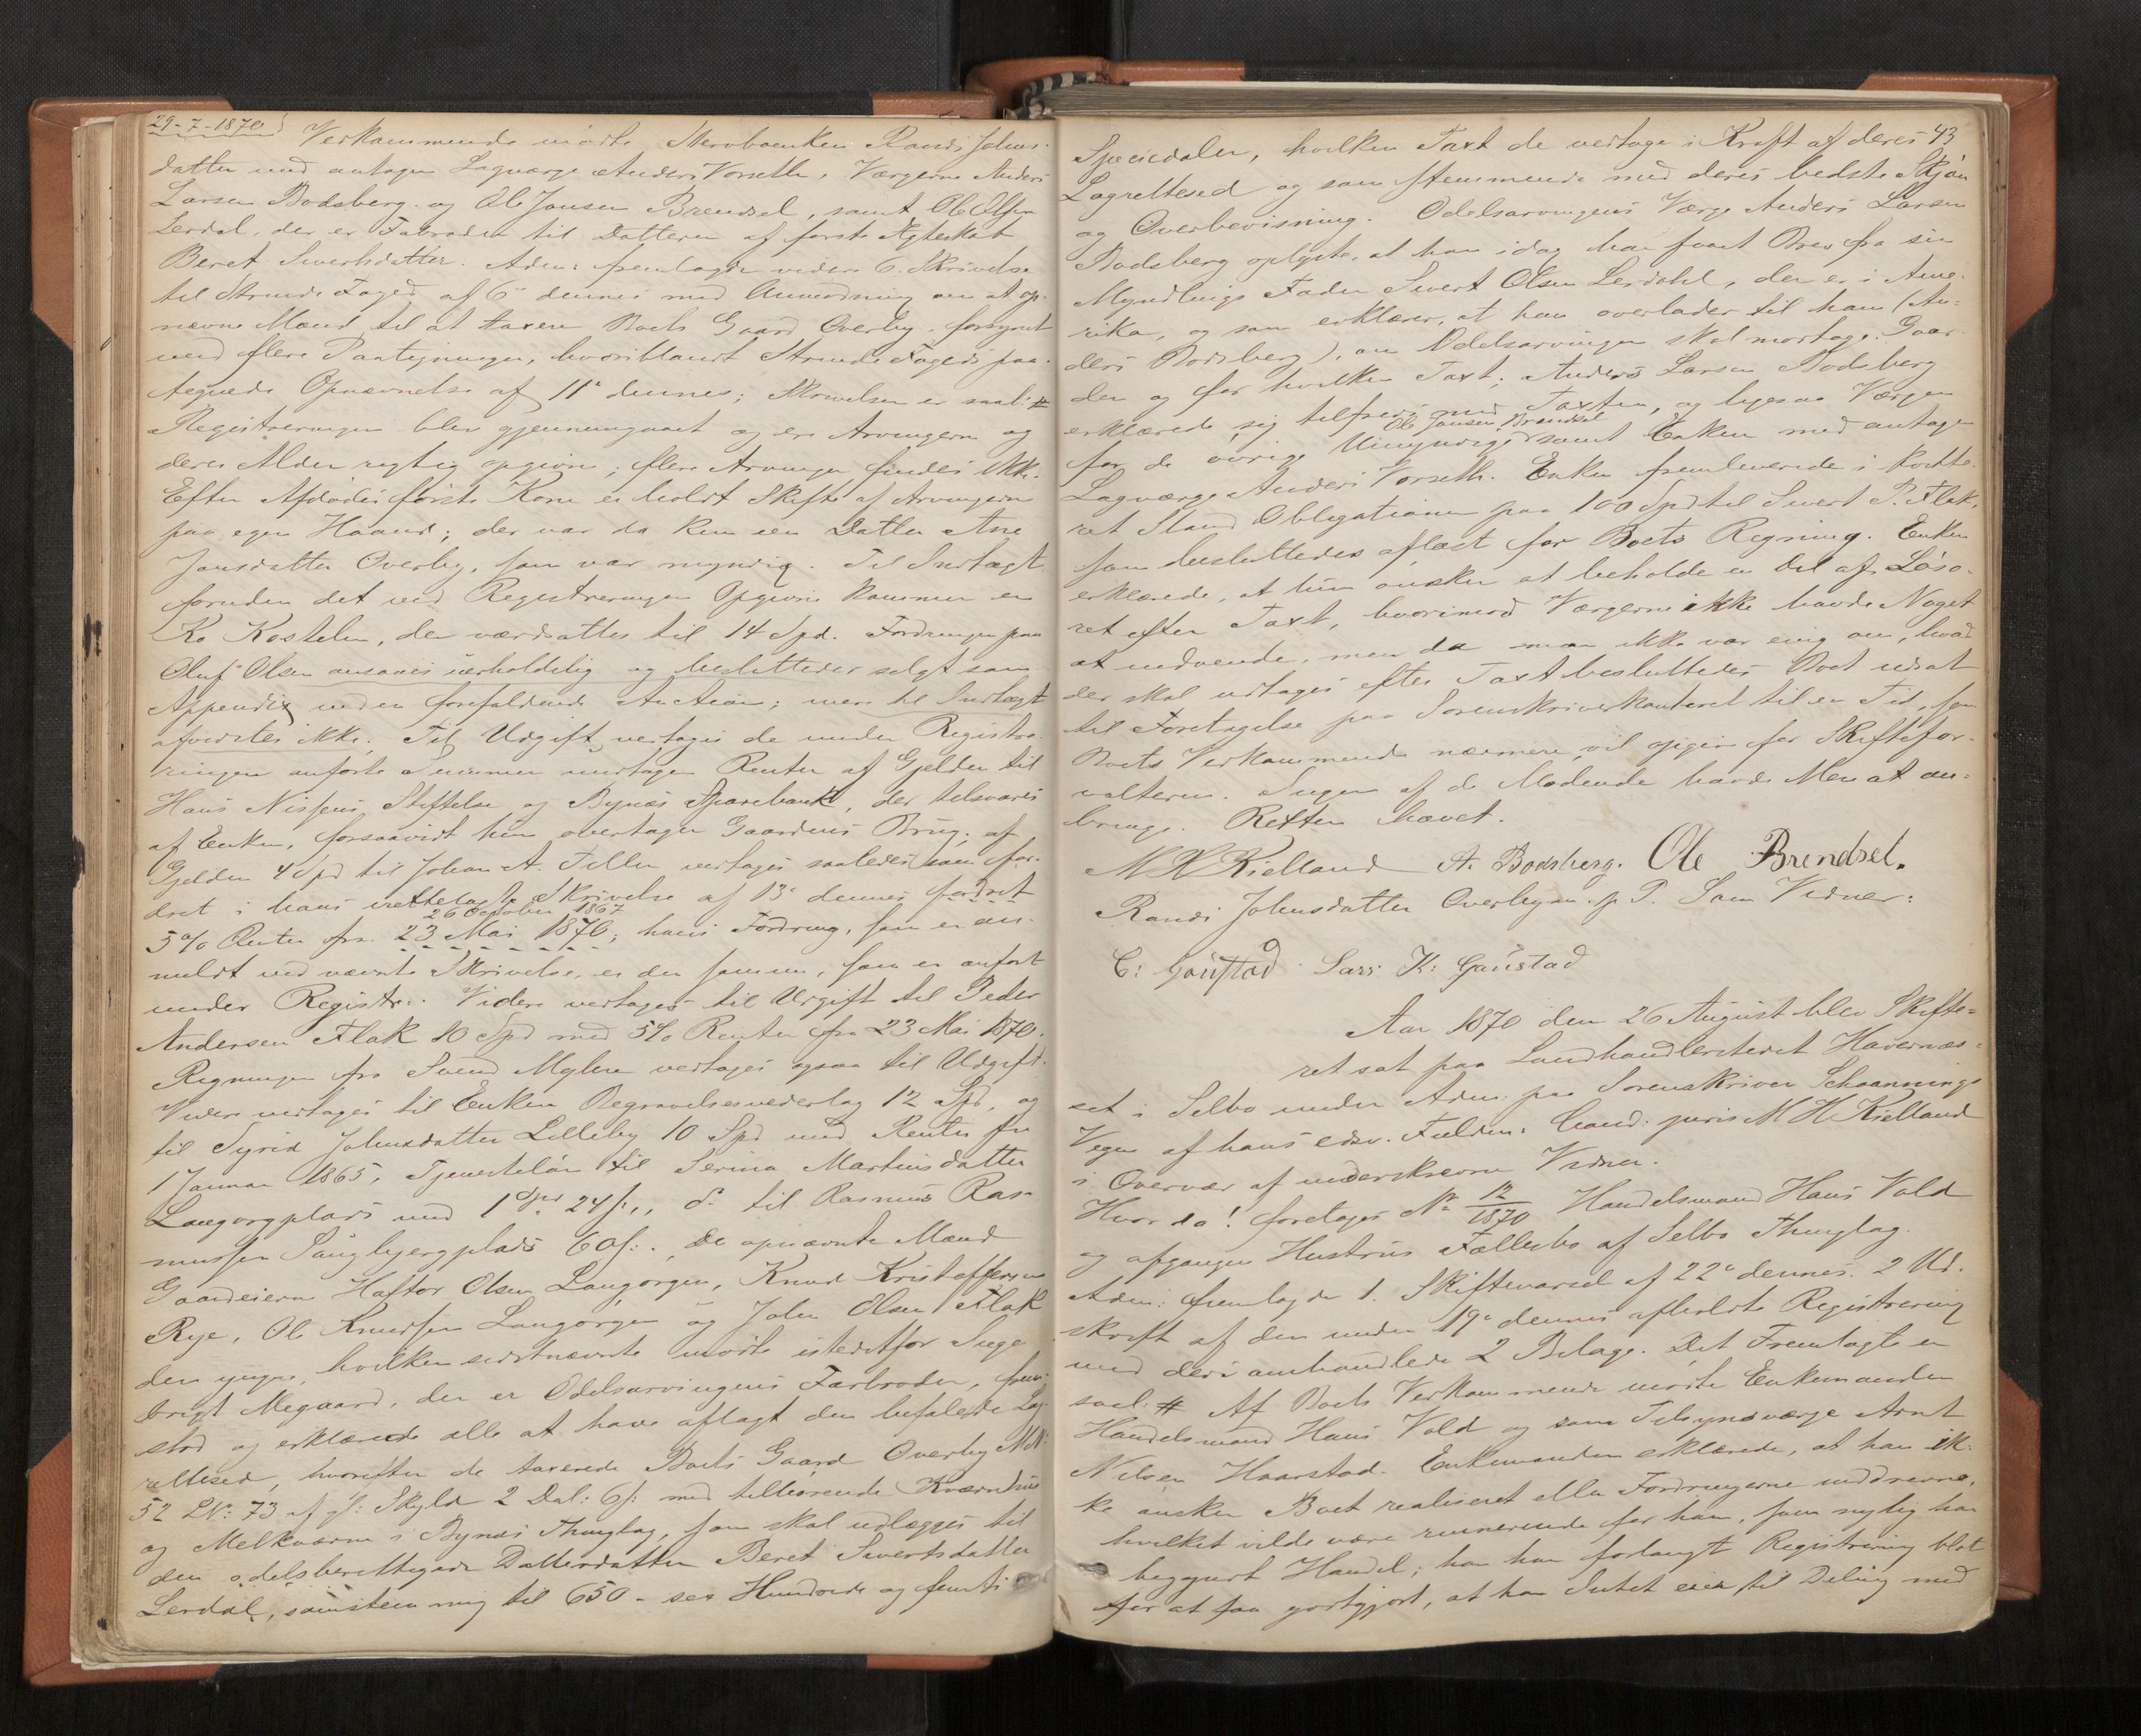 29-7-1870
Vedkommende mødte Stervboenken Randi Johns-
datter med antagen Laugværge Anders Vorseth, Værgerne Anders
Larsen Bodsberg og Ole Jonsen Brendsel, samt Ole Olsen
Lerdal, der er Farbroder til Datteren af første Ægteskab
Beret Sivertsdatter. Adm: fremlagde videre 6. Skrivelse
til Strinde Foged af 6te dennes med Anmodning om at op-
nævne Mænd til at taxere Boets Gaard Overby forsynet
med flere Paategninger, hvoriblandt Strinde Fogeds paa-
tegnede Opnævnelse af 11te dennes; Skrivelsen er saal: #
Registreringen blev gjennemgaaet og ere Arvingerne og
deres Alder rigtig opgivne; flere Arvinger findes ikke.
Efter Afdødes første Kone er holdt Skifte af Arvingerne
paa egen Haand; der var da kun een Datter Ane
Jonsdatter Overby, som var myndig. Til Indtægt
foruden det ved Registreringen Opgivne kommer en
Ko Kostelin, der værdsattes til 14 Spd. Fordringen paa
Oluf Olsen ansaaes uerholdelig og besluttedes solgt som
Appendix ved en forefaldende Auction; mere til Indtægt
afvidstes ikke. Til Udgift vedtages de under Registre-
ringen anførte Summer undtagen Renter af Gjelden til
Hans Nissens Stiftelse og Bynæs Sparebank, der tilsvares
af Enken, forsaavidt hun overtager Gaardens Brug; af
Gjelden 4 Spd til Johan A. Tiller vedtages saaledes som for-
dret i hans vedlagte Skrivelse af 13de dennes fordret
26 October 1867
5% Renter fra 23 Mai 1870; hans Fordring, som er an-
meldt ved nævnte Skrivelse, er den samme, som er anført
under Registr:. Videre vedtages til Udgift til Peder
Andersen Flak 10 Spd med 5% Renter fra 23 Mai 1870.
Regningen fra Svend Myhre vedtages ogsaa til Udgift.
Videre vedtages til Enken Begravelsesvederlag 12 Spd, og
til Sigrid Johnsdatter Lilleby 10 Spd med Renter fra
1 Januar 1865, Tjenesteløn til Serina Martinsdatter
Langorgplads med 1 Spd 24 s., do til Rasmus Ras-
mussen Saugbjergplads 60 s. De opnævnte Mænd
Gaardeierne Haftor Olsen Langorgen, Knud Kristoffersen
Rye, Ole Knudsen Langørgen og John Olsen Flak
den yngre, hvilken sidstnævnte mødte istedetfor Inge-
brigt Megaard, der er Odelsarvingens Farbroder, frem-
stod og erklærede alle at have aflagt den befalede Lag-
rettesed, hvorefter de taxerede Boets Gaard Overby MN:
52 LN: 73 af gl: Skyld 2 Dal: 6 s: med tilhørende Kværnhus
og Melkværn i Bynæs Thinglag, som skal udlægges til
den odelsberettigede Datterdatter Beret Sivertsdatter
Lerdal, samstemmig til 650 - sex Hundrede og femti
43
Speciedaler, hvilken Taxt de vedtage i Kraft af deres
Lagrettesed og som stemmende med deres bedste Skjøn
og Overbevisning. Odelsarvingens Værge Anders Larsen
Bodsberg oplyste, at han idag har faaet Brev fra sin
Myndlings Fader Sivert Olsen Lerdahl, der er i Ame-
rika, og som erklærer, at han overlader til ham (An-
ders Bodsberg), om Odelsarvingen skal modtage Gaar-
den og for hvilken Taxt; Anders Larsen Bodsberg
erklærede sig tilfreds med Taxten, og ligesaa Værgen
Ole Jonsen Brendsel
for de øvrige Umyndige samt Enken med antagen
Lagværge Anders Vorseth. Enken fremleverede i kvitte-
ret Stand Obligationen paa 100 Spd til Sivert P. Flak,
som besluttedes aflæst for Boets Regning. Enken
erklærede, at hun ønsker at beholde en Del af Løsø-
ret efter Taxt, hvorimod Værgerne ikke havde Noget
at indvende, men da man ikke var enig om, hvad
der skal udtages efter Taxt besluttedes Boet udsat
til Foretagelse paa Sorenskriverkontoret til en Tid, som
Boets Vedkommende nærmere vil opgive for Skiftefor-
valteren. Ingen af de Mødende havde Mere at an-
bringe. Retten hævet.
M H Kielland A. Bodsberg. Ole Brendsel.
Randi Johnsdatter Overby m. p. P. Som Vidner:
C: Gaustad Lars K: Gaustad
Aar 1870 den 26 August blev Skifte-
ret sat paa Landhandlerstedet Havernæs-
set i Selbo under Adm: paa Sorenskriver Schaannings
Vegne af hans edsv. Fuldm: Cand: juris M H Kielland
i Overvær af underskrevne Vidner.
Hvor da! foretages No 12/1870 Handelsmand Hans Vold
og afgangne Hustrus Fællesbo af Selbo Thinglag.
Adm: fremlagde 1. Skiftevarsel af 22de dennes. 2 Ud-
skrift af den under 19de dennes afholdte Registrering
med deri omhandlede 2 Bilage. Det Fremlagte er
saal: # Af Boets Vedkommende mødte Enkemanden
Handelsmand Hans Vold og som Tilsynsværge Arnt
Nilsen Haarstad. Enkemanden erklærede, at han ik-
ke ønsker Boet realiseret eller Fordringerne inddrevne,
hvilket vilde være ruinerende for ham, som nylig har
begyndt Handel; han har forlangt Registrering blot
for at faa godtgjort, at han Intet eier til Deling med